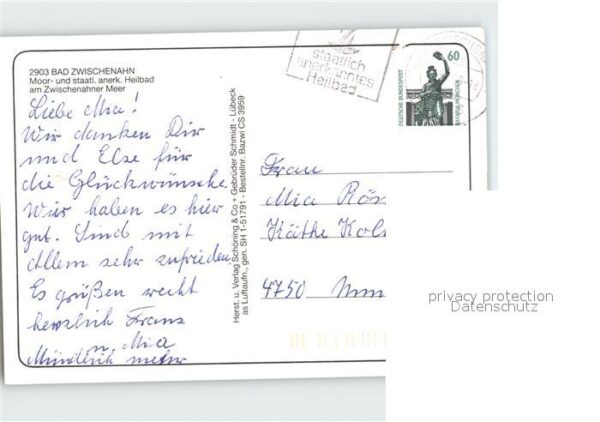 2903 BAD ZWISCHENAHN
Moor- und staatl. anerk. Heilbad
am Zwischenahner Meer
Liebe Mia!
Wir danken Dir
und Else für
die Glückwünsche.
Wir haben es hier
gut. Sind mit
Allem sehr zufrieden.
Es grüßen recht
herzlich Frans
u. Mia
Mündlich mehr
Herst. u. Verlag Schöning & Co + Gebrüder Schmidt - Lübeck
as Luftaufn., gen. SH 1-51791 - Bestellnr. Bazwi CS 3959
staatlich
anerkanntes
Heilbad
60
DEUTSCHE BUNDESPOST
BAVARIA MÜNCHEN
Frau
Mia Rös
Käthe Kol
4750
privacy protection
Datenschutz